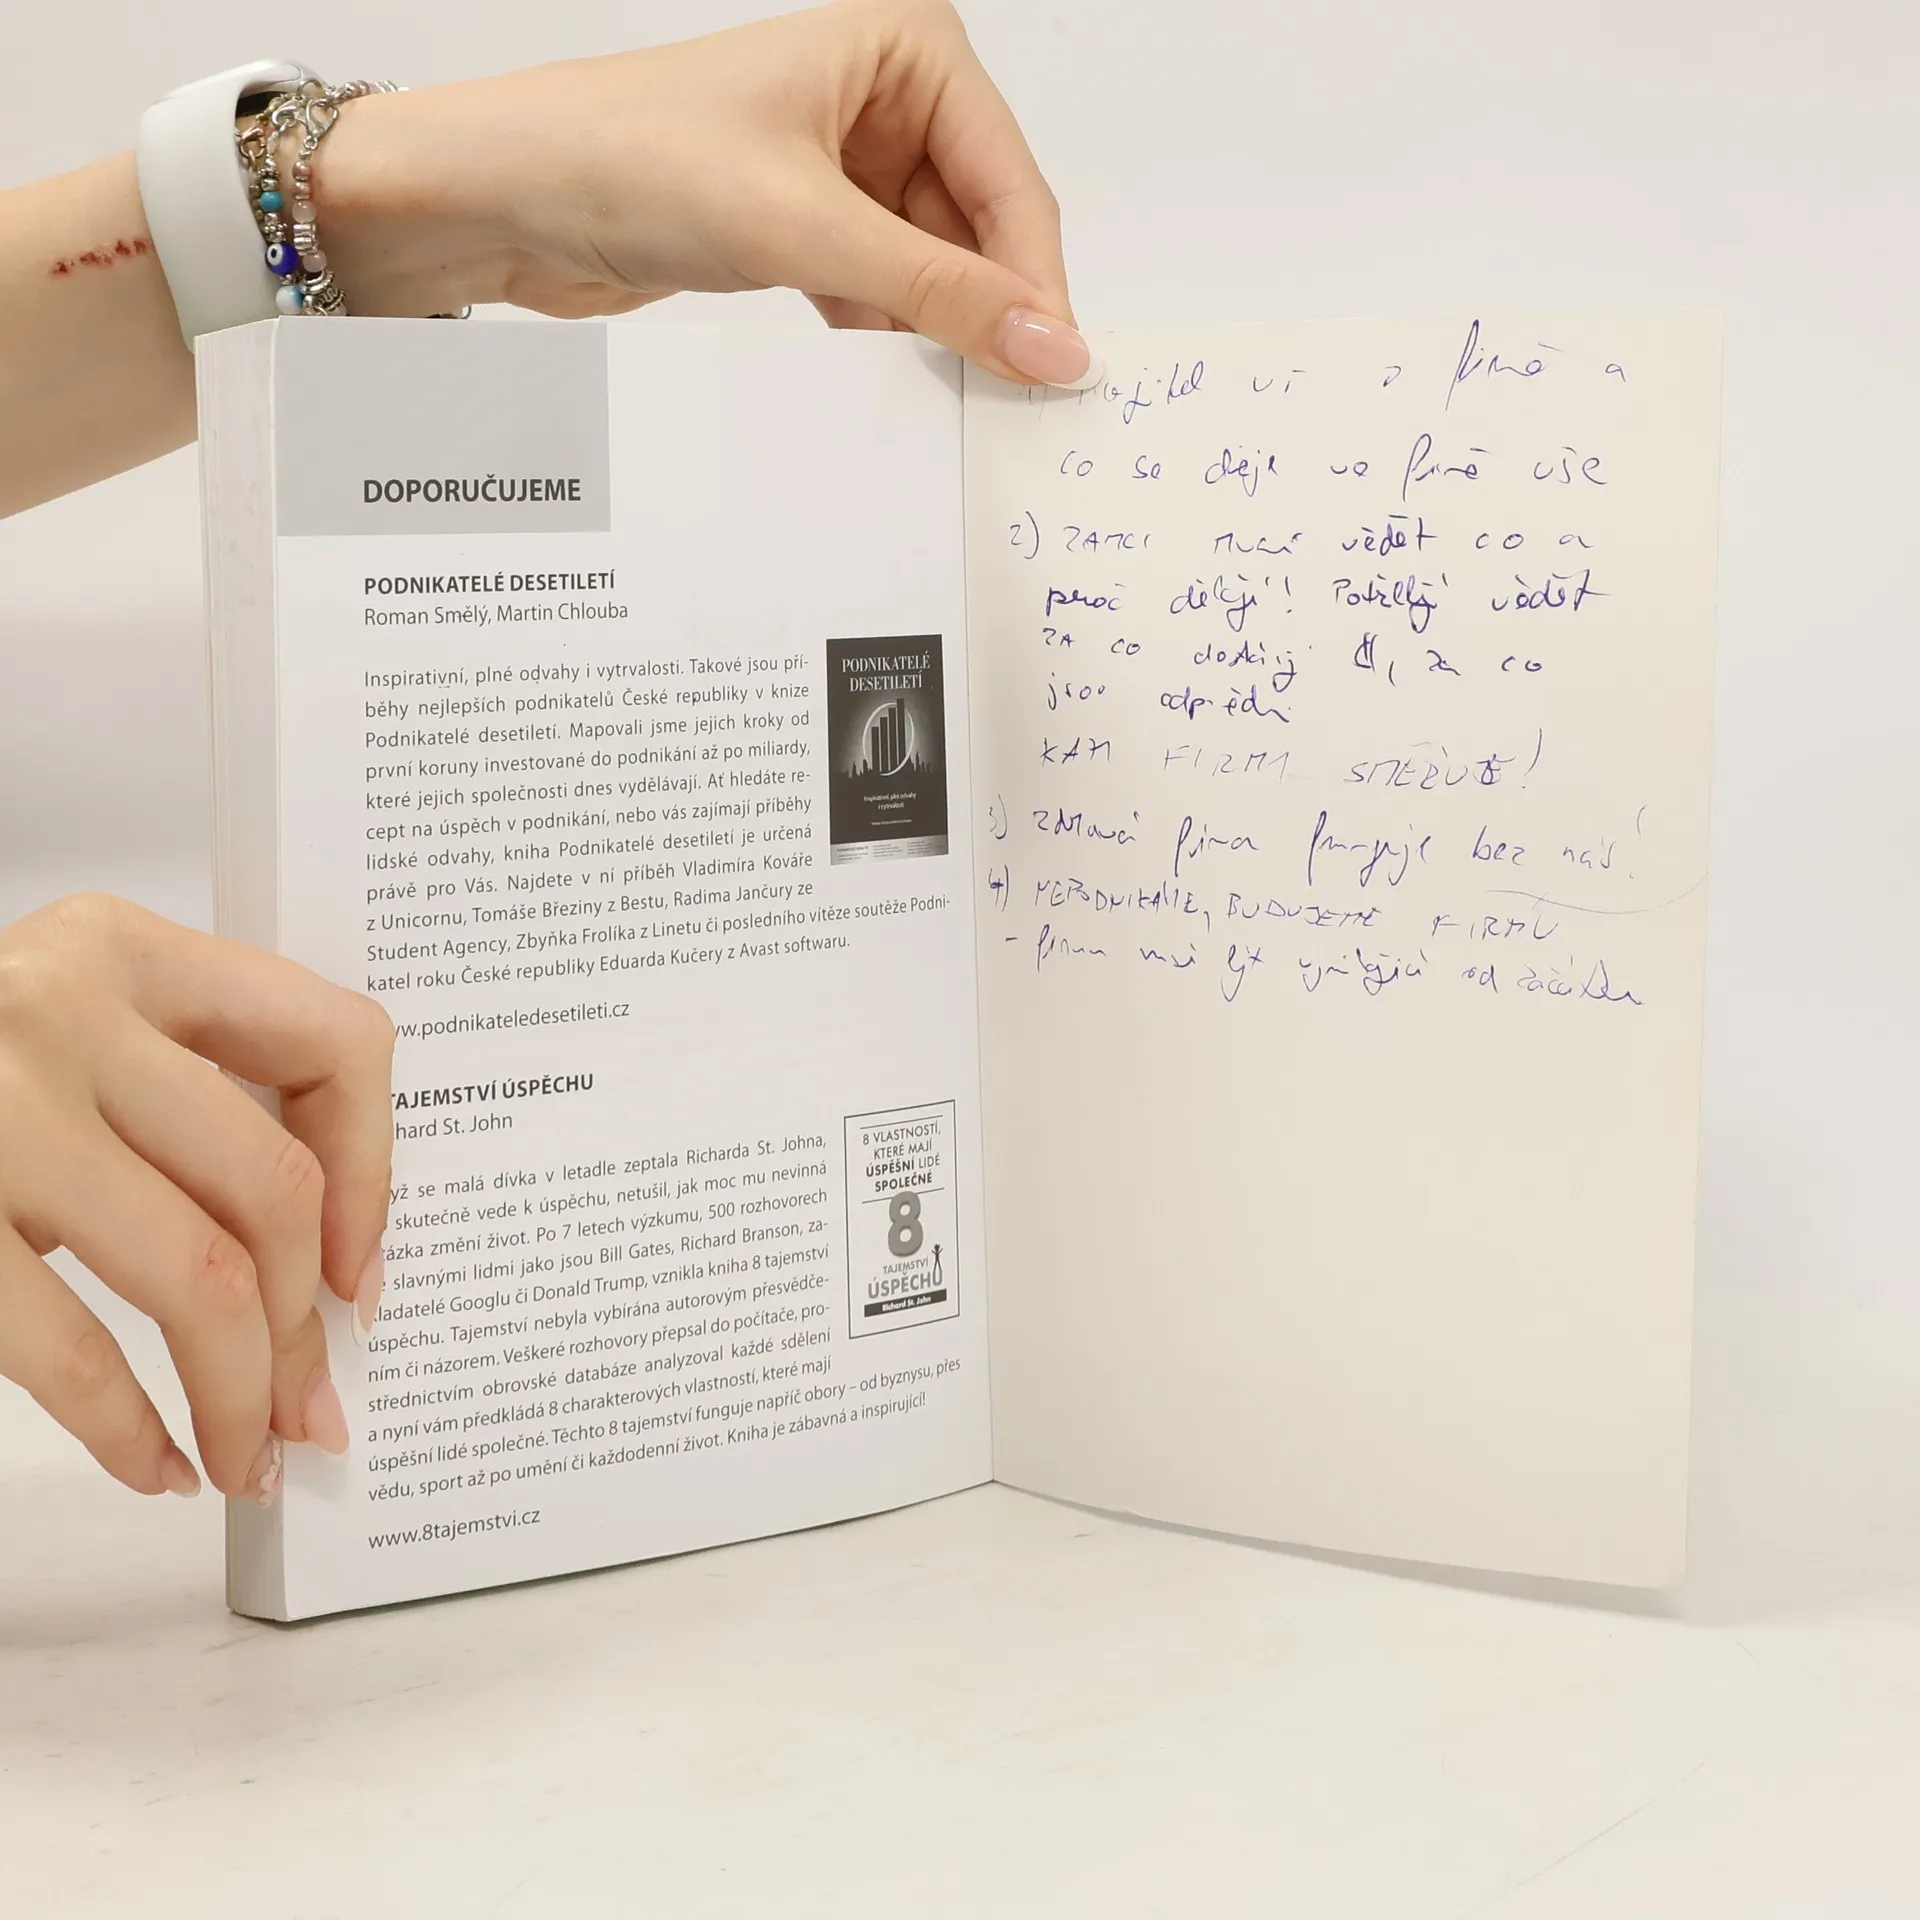 DOPORUČUJEME
PODNIKATELÉ DESETILETÍ
Roman Smělý, Martin Chlouba
Inspirativní, plné odvahy i vytrvalosti. Takové jsou pří-
běhy nejlepších podnikatelů České republiky v knize
Podnikatelé desetiletí. Mapovali jsme jejich kroky od
první koruny investované do podnikání až po miliardy,
které jejich společnosti dnes vydělávají. Ať hledáte re-
cept na úspěch v podnikání, nebo vás zajímají příběhy
lidské odvahy, kniha Podnikatelé desetiletí je určená
právě pro Vás. Najdete v ní příběh Vladimíra Kováře
z Unicornu, Tomáše Březiny z Bestu, Radima Jančury ze
Student Agency, Zbyňka Frolíka z Linetu či posledního vítěze soutěže Podni-
katel roku České republiky Eduarda Kučery z Avast softwaru.
w.podnikateledesetileti.cz
PODNIKATELÉ
DESETILETÍ
Inspirativní, plní odvahy
i vytrvalosti
TAJEMSTVÍ ÚSPĚCHU
hard St. John
yž se malá dívka v letadle zeptala Richarda St. Johna,
skutečně vede k úspěchu, netušil, jak moc mu nevinná
ázka změní život. Po 7 letech výzkumu, 500 rozhovorech
slavnými lidmi jako jsou Bill Gates, Richard Branson, za-
ladatelé Googlu či Donald Trump, vznikla kniha 8 tajemství
úspěchu. Tajemství nebyla vybírána autorovým přesvědče-
ním či názorem. Veškeré rozhovory přepsal do počítače, pro-
střednictvím obrovské databáze analyzoval každé sdělení
a nyní vám předkládá 8 charakterových vlastností, které mají
úspěšní lidé společné. Těchto 8 tajemství funguje napříč obory – od byznysu, přes
vědu, sport až po umění či každodenní život. Kniha je zábavná a inspirující!
www.8tajemstvi.cz
8 VLASTNOSTÍ,
KTERÉ MAJÍ
ÚSPĚŠNÍ LIDÉ
SPOLEČNÉ
8
TAJEMSTVÍ
ÚSPĚCHU
Richard St. John
ví o firmě a
co se děje ve firmě vše
2) ZAMCI musí vědět co a
proč dělají! Potřebují vědět
ZA co dostávají, za co
jsou odpovědni
KAM FIRMA SMĚŘUJE!
3) zdravá firma funguje bez nás!
4) NEPODNIKÁME, BUDUJEME FIRMU
- firma musí být vynikající od začátku